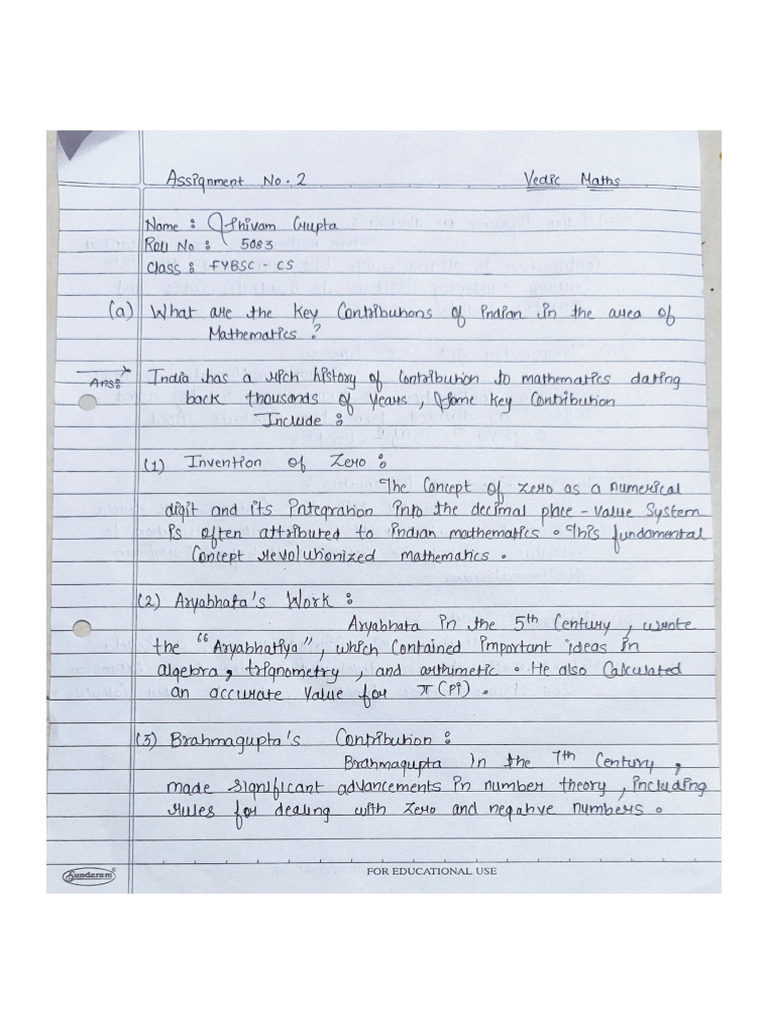 Assignment No. 2 Vedic Maths
Name : Shivam Gupta
Roll No : 5083
Class : FYBSC - CS
(a) What are the key Contributions of indian in the area of
Mathematics ?
Ans: India has a rich history of Contribution to mathematics dating
back thousands of years , Some key Contribution
Include :
(1) Invention of Zero :
The Concept of zero as a numerical
digit and its integration into the decimal place - value System
is often attributed to indian mathematics . This fundamental
Concept revolutionized mathematics .
(2) Aryabhata's Work :
Aryabhata in the 5th Century , wrote
the "Aryabhatiya" , which Contained important ideas in
algebra , trignometry , and arthimetic . He also Calculated
an accurate Value for π (Pi) .
(3) Brahmagupta's Contribution :
Brahmagupta in the 7th Century ,
made significant advancements in number theory , including
rules for dealing with Zero and negative numbers .
Sundaram®
FOR EDUCATIONAL USE